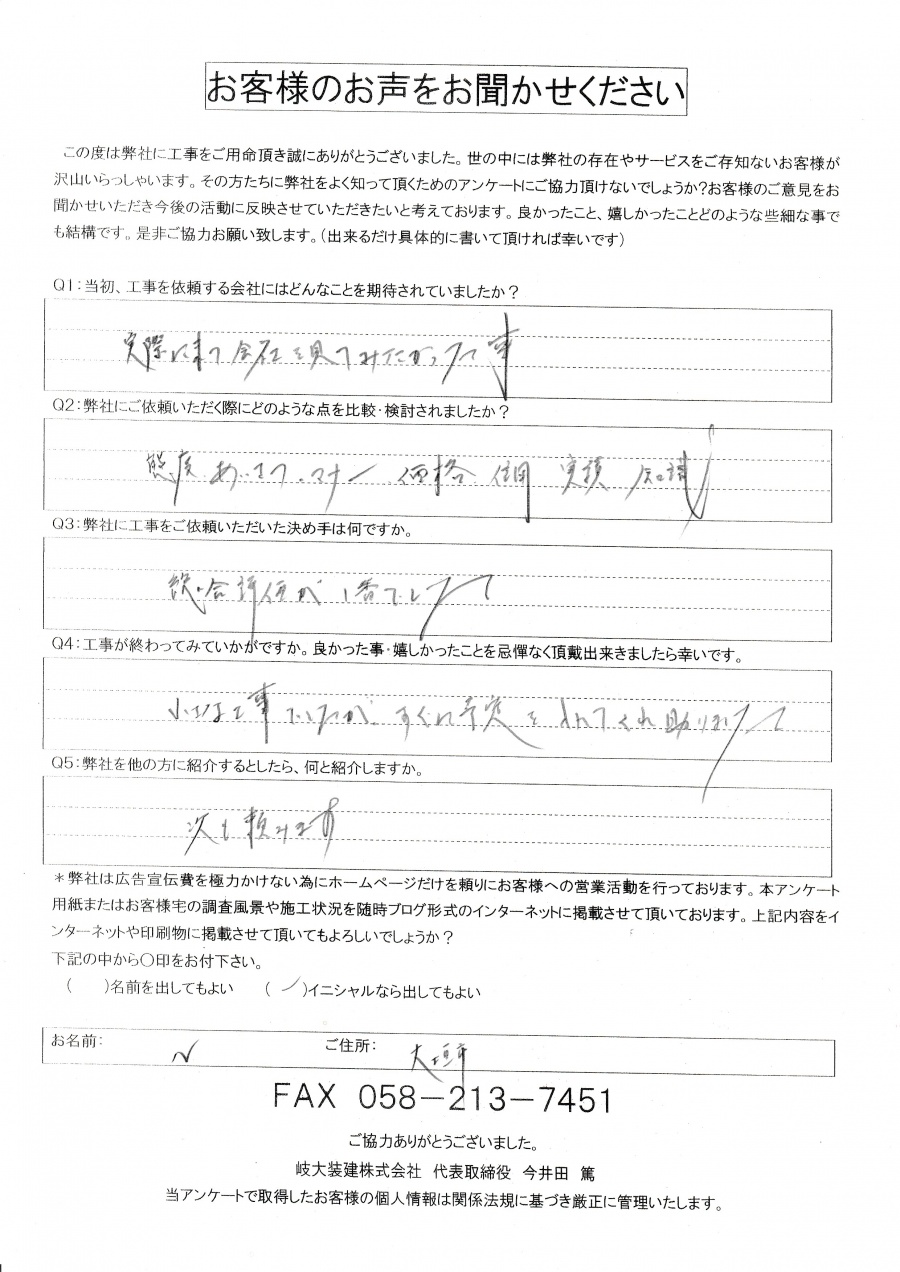 お客様のお声をお聞かせください
この度は弊社に工事をご用命頂き誠にありがとうございました。世の中には弊社の存在やサービスをご存知ないお客様が
沢山いらっしゃいます。その方たちに弊社をよく知って頂くためのアンケートにご協力頂けないでしょうか?お客様のご意見をお
聞かせいただき今後の活動に反映させていただきたいと考えております。良かったこと、嬉しかったことどのような些細な事で
も結構です。是非ご協力お願い致します。(出来るだけ具体的に書いて頂ければ幸いです)
Q1:当初、工事を依頼する会社にはどんなことを期待されていましたか?
実際に来て会社を見てみたかった事
Q2:弊社にご依頼いただく際にどのような点を比較・検討されましたか?
態度 あいさつ、マナー 価格 信用 実績 知識
Q3:弊社に工事をご依頼いただいた決め手は何ですか。
総合評価が1番でした
Q4:工事が終わってみていかがですか。良かった事・嬉しかったことを忌憚なく頂戴出来きましたら幸いです。
小さな工事でしたが、すぐに予定を入れてくれ助りました
Q5:弊社を他の方に紹介するとしたら、何と紹介しますか。
次も頼みます
*弊社は広告宣伝費を極力かけない為にホームページだけを頼りにお客様への営業活動を行っております。本アンケート
用紙またはお客様宅の調査風景や施工状況を随時ブログ形式のインターネットに掲載させて頂いております。上記内容をイ
ンターネットや印刷物に掲載させて頂いてもよろしいでしょうか?
下記の中から〇印をお付下さい。
( )名前を出してもよい ( ✓ )イニシャルなら出してもよい
お名前: N ご住所: 大垣市
FAX 058-213-7451
ご協力ありがとうございました。
岐大装建株式会社 代表取締役 今井田 篤
当アンケートで取得したお客様の個人情報は関係法規に基づき厳正に管理いたします。